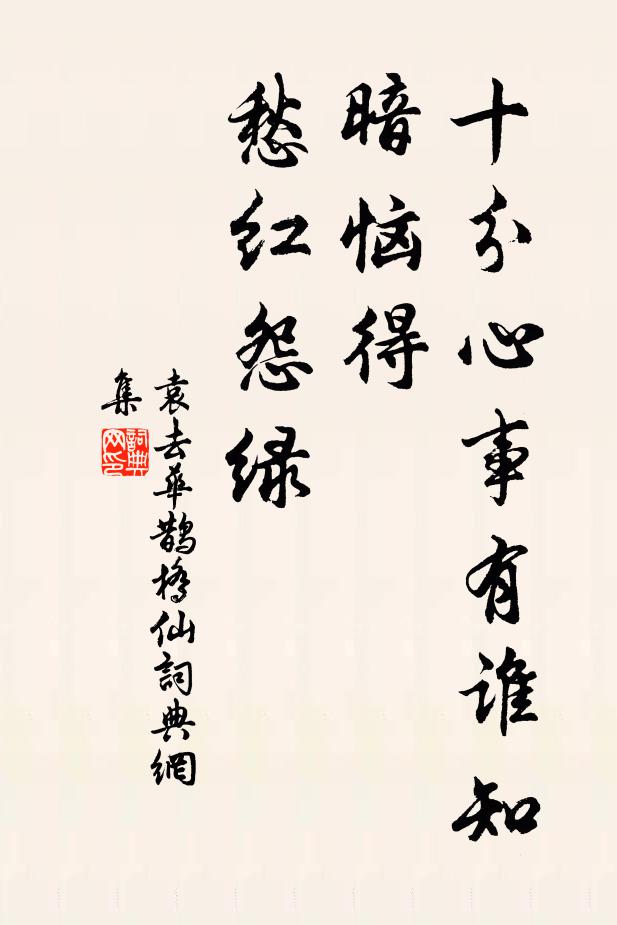 十分心事有谁知
暗恼得
愁红怨绿
袁去华鹊桥仙詞典網
集
詞典
网印